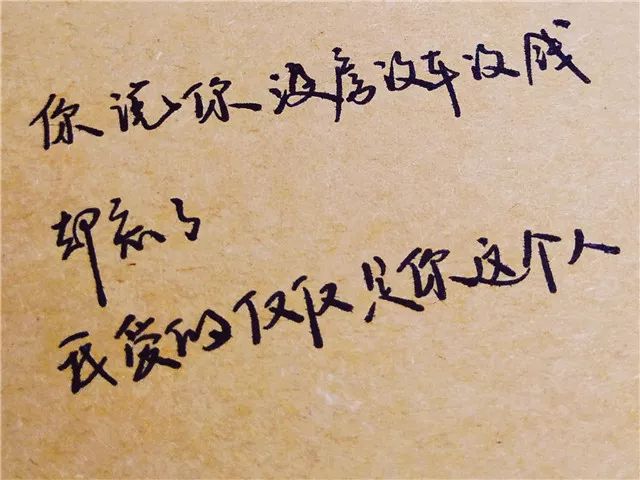 你说你没房没车没钱
却忘了
我爱的仅仅是你这个人